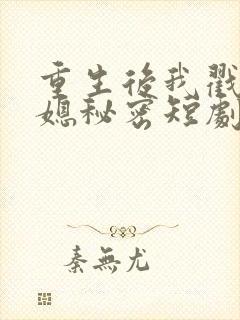 重生後我戳
媳秘密短劇
秦無尤